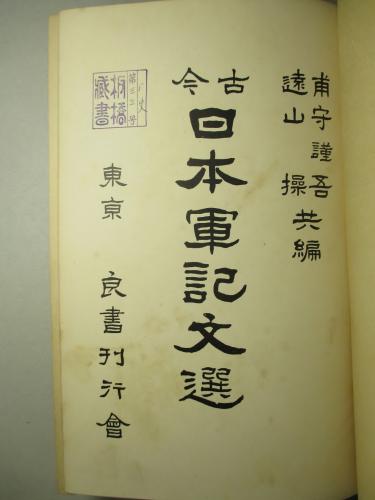 甫守謹吾
遠山操 共編
古今
日本軍記文選
東京 良書刊行會
板橋
藏書